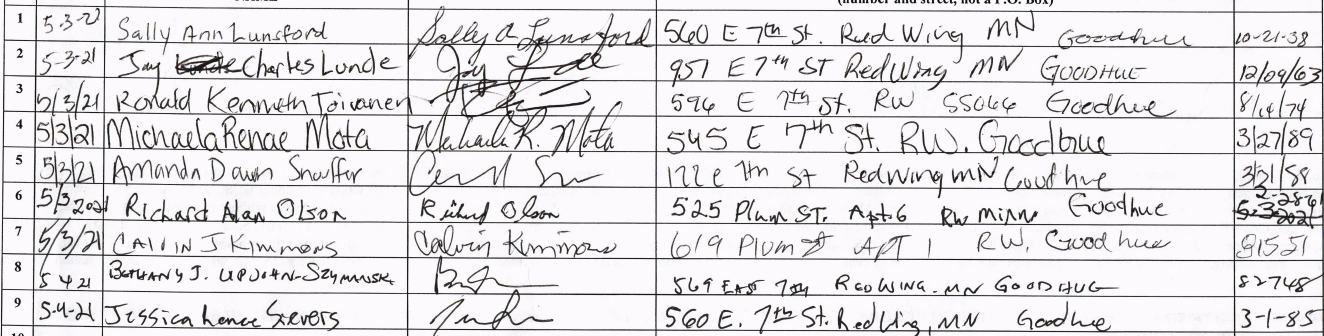 (number and street, not a P.O. Box)
1 5-3-21 Sally Ann Lunsford Sally A Lunsford 560 E 7th St. Red Wing MN Goodhue 10-21-38
2 5-3-21 Jay Charles Lunde 957 E 7th ST Red Wing MN GOODHUE 12/09/63
3 5/3/21 Ronald Kenneth Toivanen 596 E 7th St. RW 55066 Goodhue 8/14/74
4 5/3/21 Michaela Renae Mota Michaela R. Mota 545 E 7th St. RW. Goodhue 3/27/89
5 5/3/21 Amanda Dawn 7th St Red Wing MN Goodhue
6 5/3 2021 Richard Alan Olson Richard Olson 525 Plum ST. Apt. 6 RW Minn Goodhue
7 5/3/21 CALVIN J Kimmons Calvin Kimmons 619 Plum St APT 1 RW. Goodhue
8 5 4 21 BETHANY J. UPJOHN-SZYMANSKI 569 EAST 7TH RED WING. MN GOODHUE 82748
9 5-4-21 Jessica 560 E. 7th St. Red Wing, MN Goodhue 3-1-85